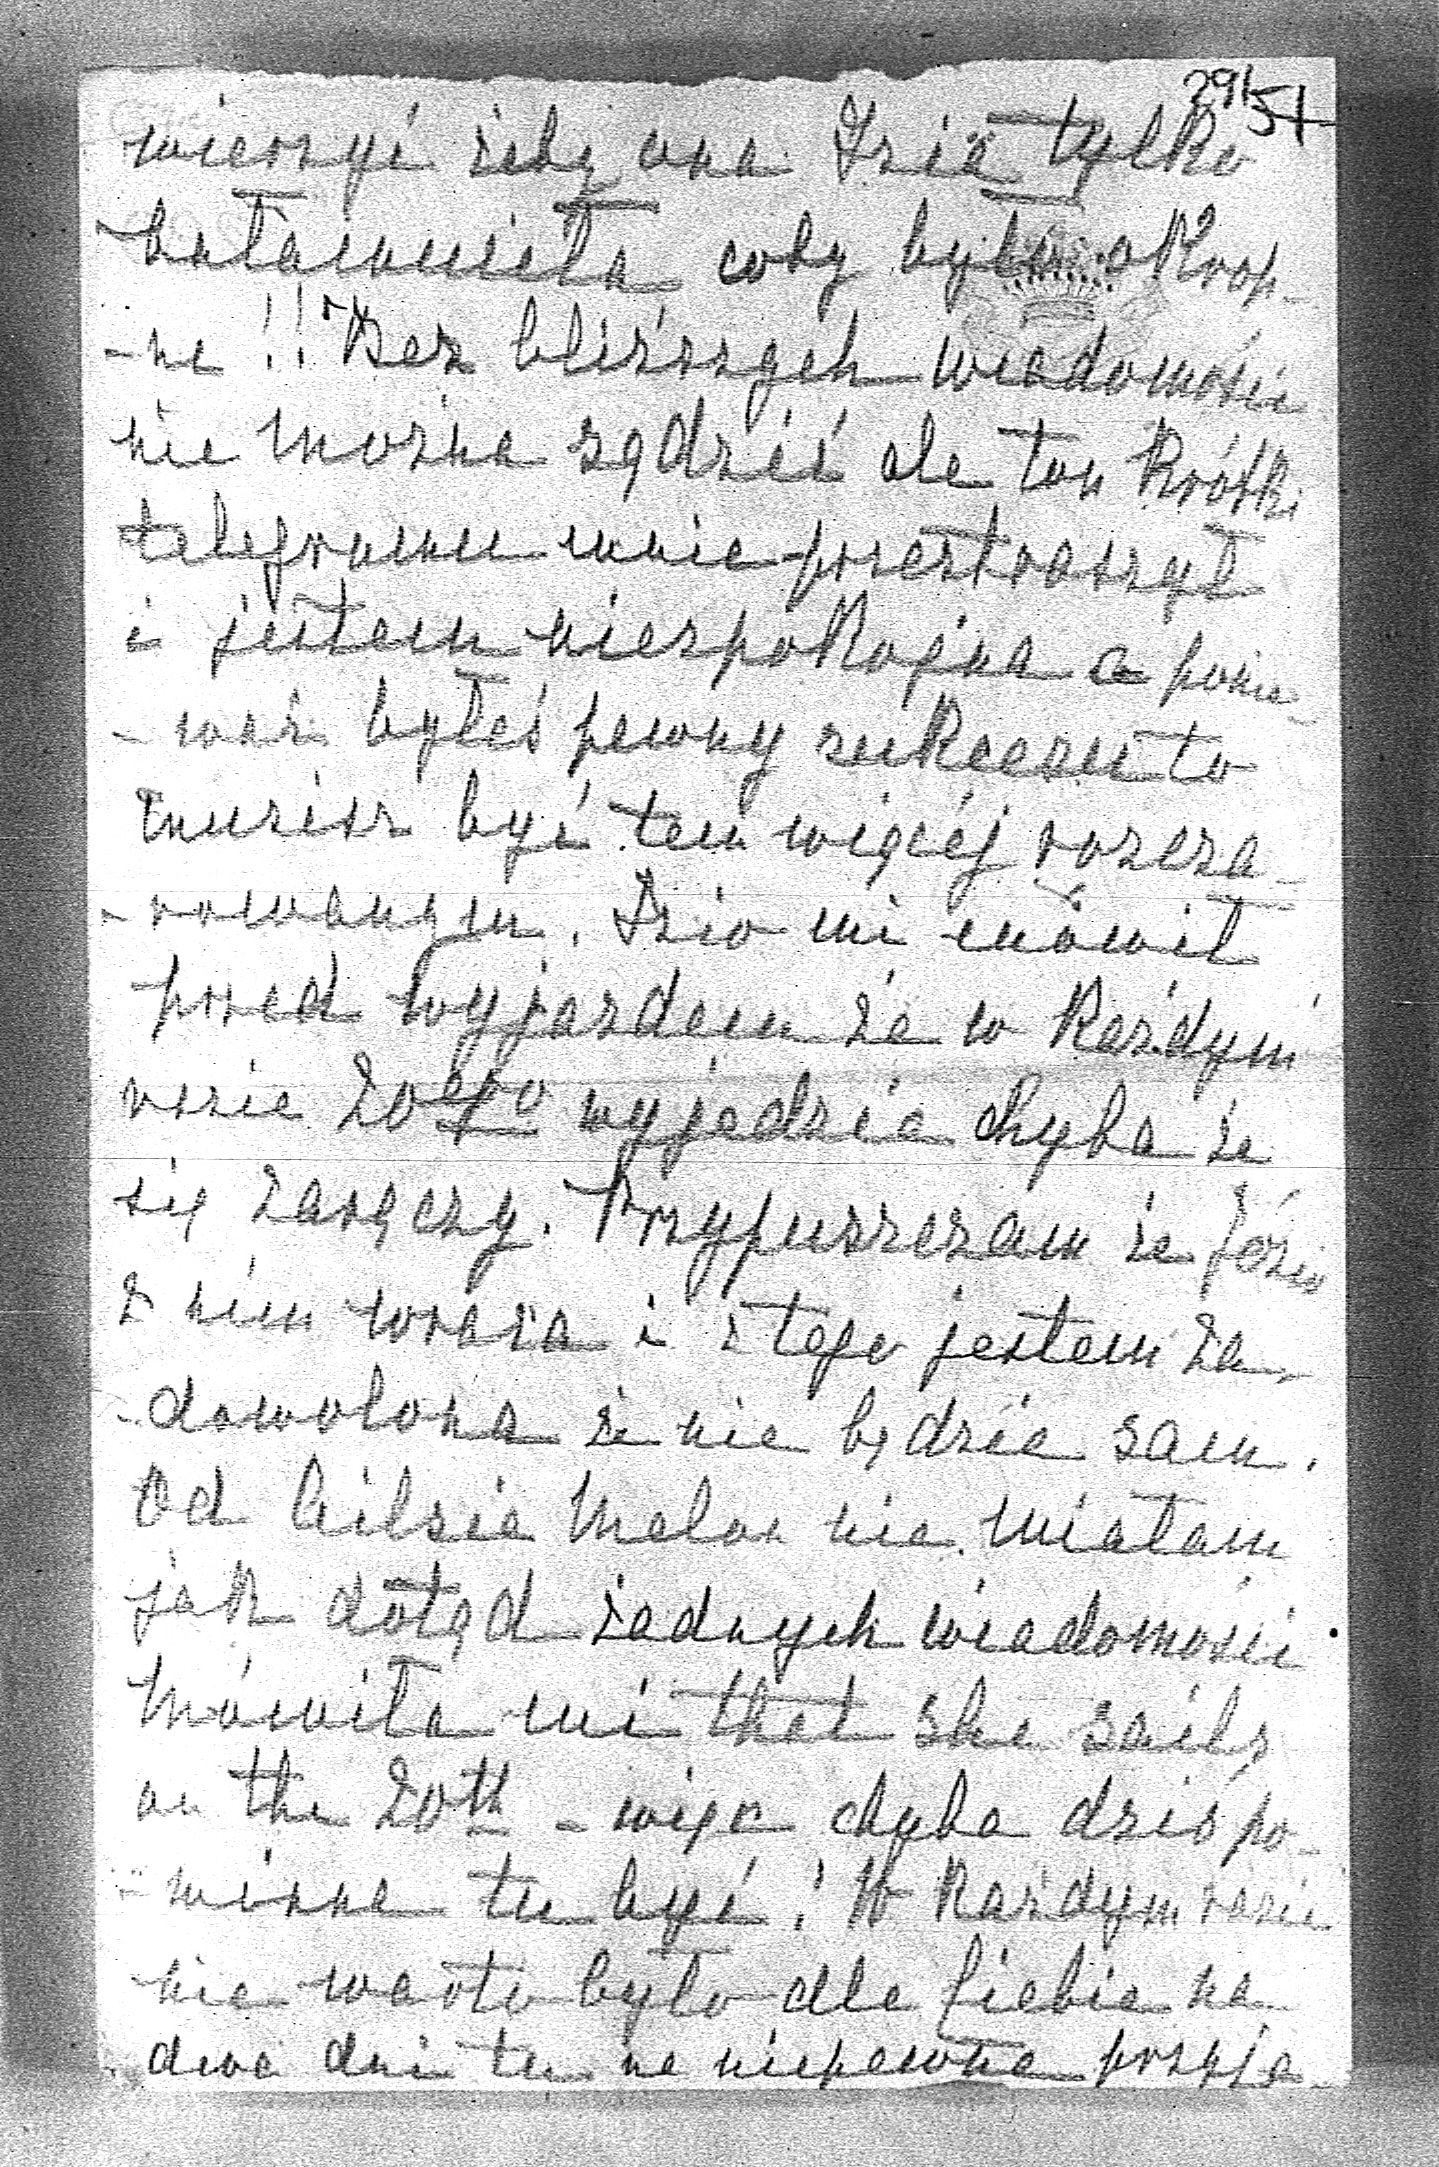 291
51
wierzyć żeby ona Izia tylko
bałamuciła coby było okrop-
-ne!! Bez bliższych wiadomości
nie można sądzić ale ton krótki
telegramu mnie przestraszył
i jestem niespokojna a ponie-
-waż byłeś pewny sukcesu to
musisz być tem więcéj rozcza-
-rowanym. Izio mi mówił
przed wyjazdem że w każdym
razie 20ego wyjedzie chyba że
się zaręczy. Przypuszczam że Józio
z nim wraca i z tego jestem za-
-dowolona że nie będzie sam.
Od nie miałam
jak dotąd żadnych wiadomości
Mówiła mi that she sails
on the 20th – więc chyba dziś po-
-winna tu być! W każdym razie
nie warto było dla Ciebie na
dwa dni tu na niepewne przyje-